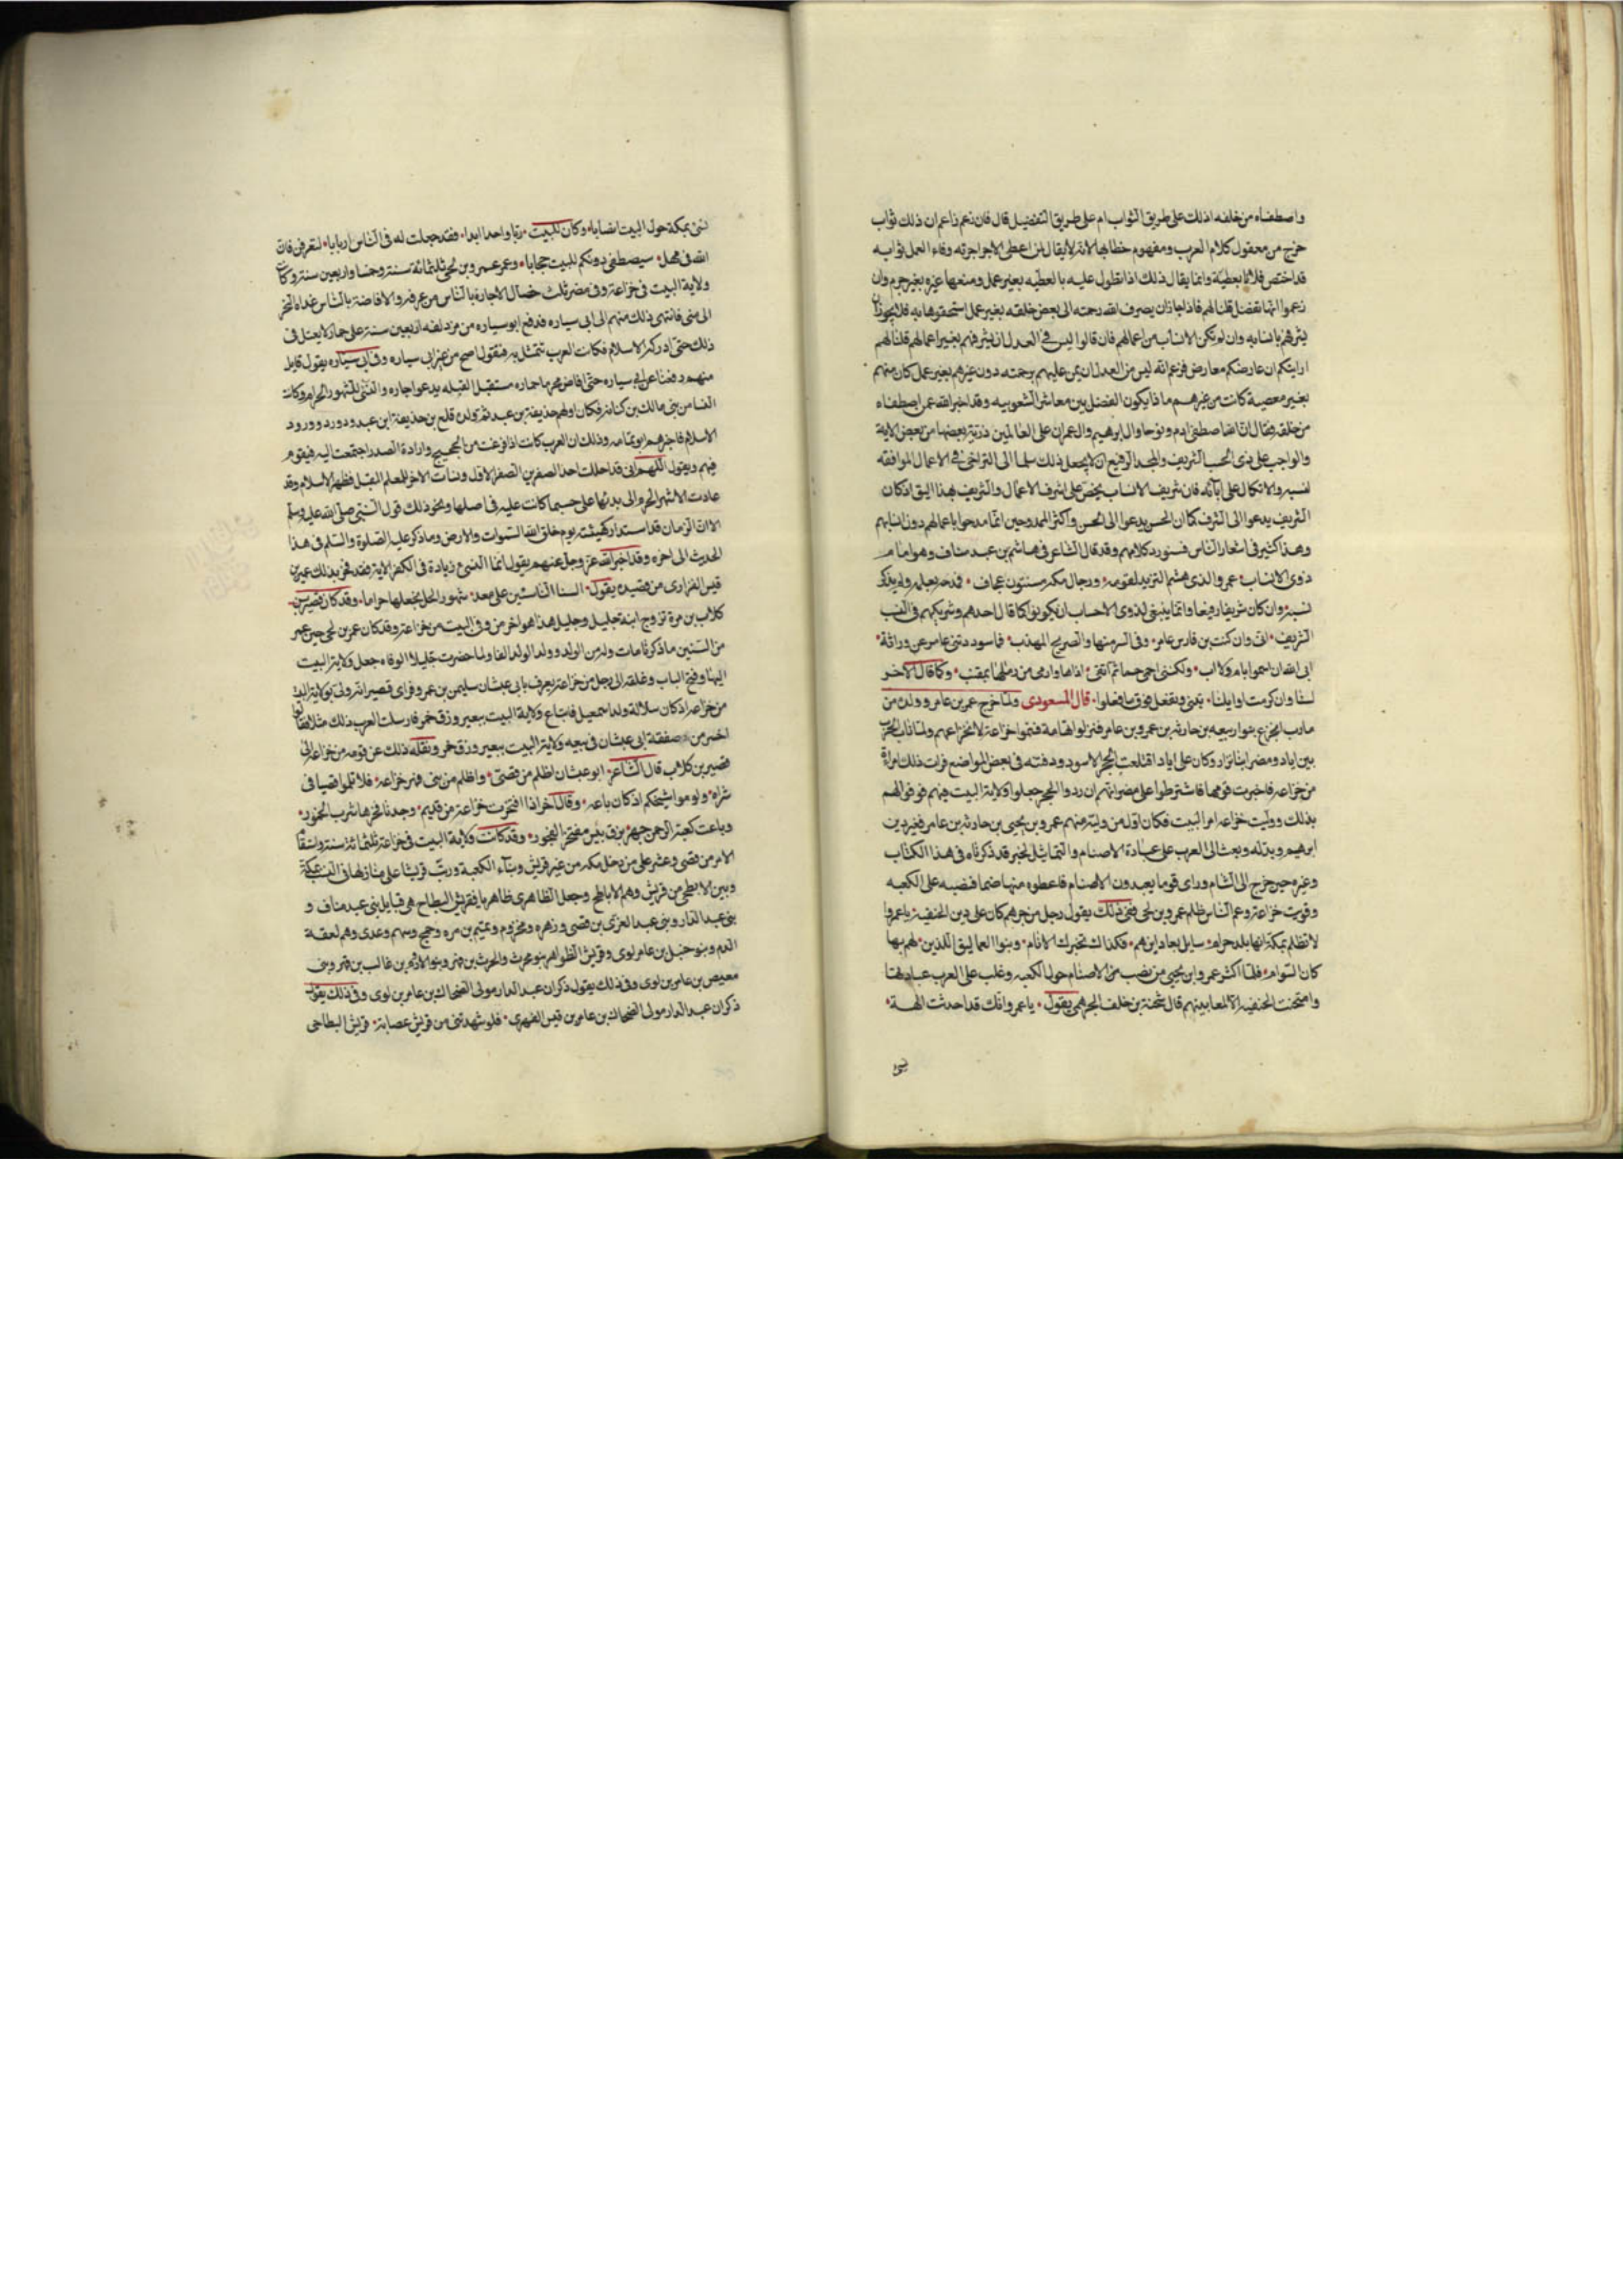 واصطفاه من خلقه اذلك على طريق الثواب ام على طريق التفضيل قال فان زعم زاعم ان ذلك ثواب
خرج من معقول كلام العرب ومفهوم خطابها لانه لا يقال لمن اعطى الاجير اجرته وفاء العمل ثوابه
قد اختص فلانا بعطيه وانما يقال ذلك اذا تطول عليه بالعطيه بغير عمل ومنعها غيره بغير جرم وان
زعموا انها تفضل قلنا لهم فاذا جاز ان يصرف الله رحمته الى بعض خلقه بغير عمل استحقوها به فلم لا يجوز ان
يشرفهم بانسابهم وان لم تكن الانساب من اعمالهم فان قالوا ليس فى العدل ان يشرفهم بغير اعمالهم قلنا لهم
ارايتكم ان عارضكم معارض فزعم انه ليس من العدل ان يمن عليهم برحمته دون غيرهم بغير عمل كان منهم
بغير معصية كانت من غيرهم ماذا يكون الفصل بين معاشر الشعوبيه وقد اخبر الله عن اصطفاء
من خلقه فقال ان الله اصطفى ادم ونوحا وال ابرهيم وال عمران على العالمين ذرية بعضها من بعض الاية
والواجب على ذى الحسب الشريف والمجد الرفيع ان لا يجعل ذلك سلما الى التراخى فى الاعمال الموافقه
لنسبه والاتكال على ابائه فان شريف الانساب يحض على اشرف الاعمال والشريف بهذا اليق اذ كان
الشريف يدعوا الى الشرف كما ان الحسن يدعوا الى الحسن واكثر الممدوحين انما مدحوا باعمالهم دون انسابهم
وهذا كثير فى اشعار الناس فسنورد كلامهم وقد قال الشاعر فى هاشم بن عبد مناف وهو امام
ذوى الانساب عمرو الذى هشم الثريد لقومه ورجال مكه مسنتون عجاف فمدحه بعمله ولم يذكر
نسبه وان كان شريفا رفيعا وانما ينبغى لذوى الاحساب ان يكونوا كما قال احدهم وشريكهم فى النسب
الشريف انى وان كنت بن فارس عامر وفى السر منها والصريح المهذب فما سودتنى عامر عن وراثة
ابى الله ان اسموا بام ولا اب ولكننى احمى حماها واتقى اذاها وارمى من رماها بمقنب وكما قال الاخر
لسنا وان كرمت اوايلنا نبنى ونفعل فوق ما فعلوا قال المسعودى ولما خرج عمر بن عامر وولده من
مارب انخزع بنوا ربيعه بن حارثه بن عمرو بن عامر فنزلوا تهامة فسموا خزاعة لانخزاعهم ولما ثارت الحرب
بين اياد ومضر ابنا نزار وكان على اياد اقتلعت الحجر الاسود ودفنته فى بعض المواضع فرات ذلك امراة
من خزاعه فاخبرت قومها فاشترطوا على مضر انهم ان ردوا الحجر جعلوا ولاية البيت فيهم فوفوا لهم
بذلك ووليت خزاعه امر البيت فكان اول من وليه منهم عمرو بن يحيى بن حارثه بن عامر فغير دين
ابرهيم وبدله وبعث الى العرب على عبادة الاصنام والتماثيل لخبر قد ذكرناه فى هذا الكتاب
وغيره حين خرج الى الشام وراى قوما يعبدون الاصنام فاعطوه منها صنما فنصبه على الكعبه
وقويت خزاعة وعم الناس ظلم عمرو بن لحى ففى ذلك يقول رجل من جرهم كان على دين الحنفيه يا عمرو
لا تظلم بمكة انها بلد حرام سايل بعاد اين هم فكذاك تخبرك الانام وبنوا العماليق الذين لهم بها
كان السوام فلما اكثر عمرو ابن يحيى من نصب من الاصنام حول الكعبه وغلب على العرب عبادتها
وامتحت الحنفيه الا لمعا بينهم قال شحنة بن خلف الجرهمى يقول يا عمرو انك قد احدثت الهة
شتى
شتى بمكة حول البيت انصابا وكان للبيت ربا واحدا ابدا فقد جعلت له فى الناس اربابا لتعرفن فان
الله فى مهل سيصطفى دونكم للبيت حجابا وعمر عمرو بن لحى ثلثمائة سنة وخمسا واربعين سنة وكانت
ولاية البيت فى خزاعة وفى مضر ثلث خصال الاجازة بالناس من عرفه والافاضة بالناس غداة النحر
الى منى فانتهى ذلك منهم الى ابى سياره فدفع ابو سياره من مزدلفه اربعين سنة على حماره لا يعتل فى
ذلك حتى ادركه الاسلام فكانت العرب تتمثل به فتقول اصح من عير ابى سياره وفى ابى سياره يقول قايل
منهم دفعنا عن ابى سياره حتى افاض محرما حماره مستقبل القبله يدعو جاره والنسئ للشهور الحرام وكانت
النسا من بنى مالك بن كنانه فكان اولهم حذيفة بن عبد ثم ولده قلع بن حذيفة ابن عبد ودرد وورود
الاسلام فاخرهم ابو ثمامه وذلك ان العرب كانت اذا فرغت من الحجيج وارادة الصدر اجتمعت اليه فيقوم
فيهم ويقول اللهم انى قد احللت احد الصفرين الصفر الاول ونسات الاخر للعام المقبل فظهر الاسلام وقد
عادت الاشهر الحرم الى بدئها على حسب ما كانت عليه فى اصلها ونحو ذلك قول النبى صلى الله عليه وسلم
الا ان الزمان قد استدار كهيئته يوم خلق الله السموات والارض وما ذكر عليه الصلوة والسلم فى هذا
الحديث الى اخره وقد اخبر الله عز وجل عنهم بقوله انما النسئ زيادة فى الكفر الاية وقد فخر بذلك عمير بن
قيس الفزارى من قصيده يقول السنا الناسئين على معد شهور الحل نجعلها حراما وقد كان قصى بن
كلاب بن مرة تزوج ابنة جليل وجليل هذا هو اخر من ولى البيت من خزاعة وقد كان عمر بن لحى حين عمر
من السنين ما ذكرنا مات وله من الولد وولد الولد الفا ولما حضرت جليلا الوفاه جعل ولاية البيت
اليها وفتح الباب وغلقه الى رجل من خزاعة يعرف بابى غبشان سليمن بن عمرو فراى قصى انه ولى بولاية البيت
من خزاعه اذ كان سلالة ولد اسمعيل فابتاع ولاية البيت ببعير وزق خمر فارسلت العرب ذلك مثلا فقالوا
اخسر من صفقة ابى غبشان فى بيعه ولاية البيت ببعير وزق خمر ونقله ذلك عن قومه من خزاعه الى
قصى بن كلاب قال الشاعر ابو غبشان اظلم من قصى واظلم من بنى فهر خزاعه فلا تلوموا قصيا فى
شراه ولوموا شيخكم اذ كان باعه وقال اخر اذا افتخرت خزاعة من قديم وجدنا فخرها شرب الخمور
وباعت كعبة الرحمن جهرا بزق بئس مفتخر الفجور وقد كانت ولاية البيت فى خزاعة ثلثمائة سنة واستقام
الامر من قصى وعشر على من دخل مكه من غير قريش وبناء الكعبة ورتب قريشا على منازلها فى النسب بمكة
وبين الابطحى من قريش وهم الاباطح وجعل الظاهرى ظاهريا فقريش البطاح هى قبايل بنى عبد مناف و
بنى عبد الدار وبنى عبد العزى بن قصى وزهره ومخزوم وتميم بن مره وجمح وسهم وعدى وهم لعقة
الدم وبنو حنبل بن عامر لوى وقريش الظواهر بنو محرث والحرث بن فهر وبنو الادرم بن غالب بن فهر وبنى
معيص بن عامر بن لوى وفى ذلك يقول ذكران عبد الدار مولى الضحاك بن عامر بن لوى وفى ذلك يقول
ذكران عبد الدار مولى الضحاك بن عامر بن قيس الفهرى فلو شهدتنى من قريش عصابة قريش البطاحى